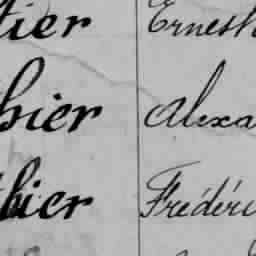 tier Ernest
hier Alexa
hier Frédéri